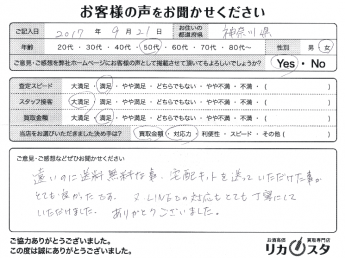 お客様の声をお聞かせください
ご記入日 2017年 9月 21日 お住いの都道府県 神奈川県
年齢 20代・30代・40代・50代・60代・70代・80代〜 性別 男・女
ご意見・ご感想を弊社ホームページにお客様の声として掲載させて頂いてもよろしいでしょうか? Yes・No
査定スピード 大満足・満足・やや満足・どちらでもない・やや不満・不満・( )
スタッフ接客 大満足・満足・やや満足・どちらでもない・やや不満・不満・( )
買取金額 大満足・満足・やや満足・どちらでもない・やや不満・不満・( )
当店をお選びいただきました決め手は? 買取金額・対応力・利便性・スピード・その他( )
ご意見・ご感想などぜひお聞かせください
遠いのに送料無料な事、宅配キットを送っていただけた事が
とても良かったです。又LINEでの対応もとても丁寧にして
いただけました。ありがとうございました。
ご協力ありがとうございました。
この度は誠にありがとうございました。
お酒買取 買取専門店
リカスタ